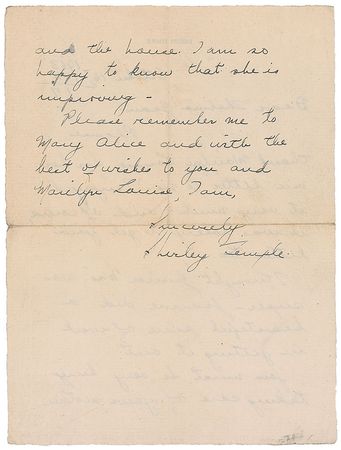 and the house. I am so
happy to know that she is
improving -
Please remember me to
Mary Alice and with the
best of wishes to you and
Marilyn Louise, I am,
Sincerely,
Shirley Temple.